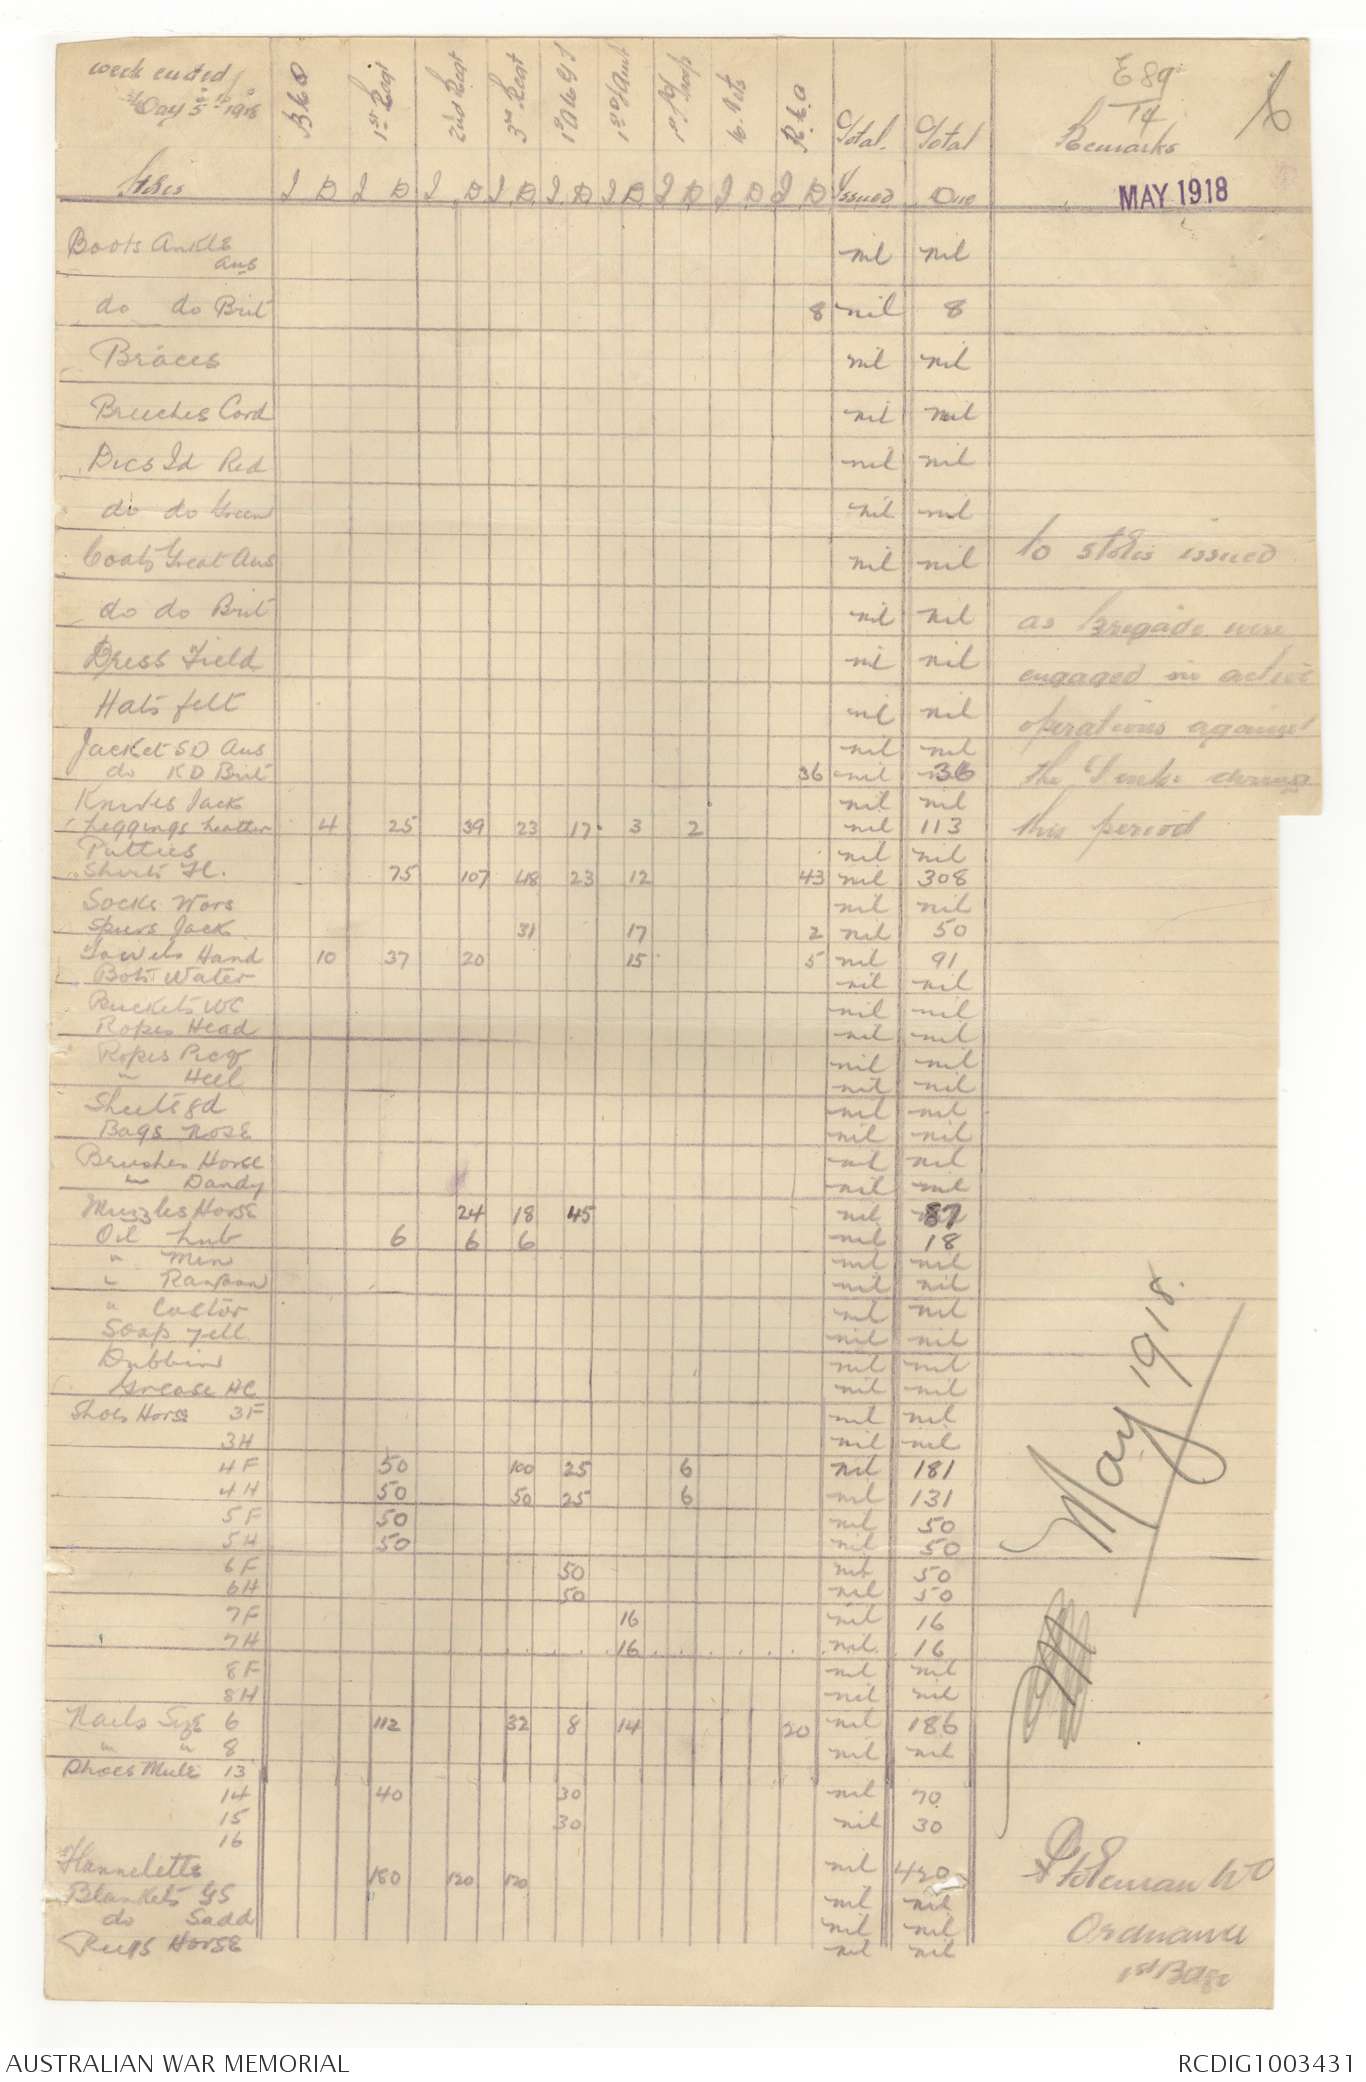 week ended
May 5th 1918
BHQ 1st Regt 2nd Regt 3rd Regt 1st Fd Amb R.H.A Total Total Remarks
E 89
14
Stores I D I D I D I D I D I D I D I D I D Issued Due MAY 1918
Boots Ankle Aus nil nil
do do Brit 8 nil 8
Braces nil nil
Breeches Cord nil nil
Discs Id Red nil nil
do do Green nil nil
Coats Great Aus nil nil
do do Brit nil nil
Dress Field nil nil
Hats felt nil nil
Jacket SD Aus nil nil
do KD Brit 36 nil 36
Knives Jack nil nil
Leggings Leather 4 25 39 23 17 3 2 nil 113
Putties nil nil
Shirts Fl. 75 107 48 23 12 43 nil 308
Socks Wors nil nil
Spurs Jack 31 17 2 nil 50
Towels Hand 10 37 20 15 5 nil 91
Bott Water nil nil
Buckets WC nil nil
Ropes Head nil nil
Ropes Picq nil nil
" Heel nil nil
Sheets Gd nil nil
Bags nose nil nil
Brushes Horse nil nil
" Dandy nil nil
Muzzles Horse 24 18 45 nil 87
Oil Lub 6 6 6 nil 18
" Min nil nil
" Rangoon nil nil
" Castor nil nil
Soap yell nil nil
Dubbin nil nil
Grease AC nil nil
Shoes Horse 3F nil nil
3H nil nil
4F 50 100 25 6 nil 181
4H 50 50 25 6 nil 131
5F 50 nil 50
5H 50 nil 50
6F 50 nil 50
6H 50 nil 50
7F 16 nil 16
7H 16 nil 16
8F nil nil
8H nil nil
Nails Size 6 112 32 8 14 20 nil 186
" " 8 nil nil
Shoes Mule 13
14 40 30 nil 70
15 30 nil 30
16
Flannelette 180 120 120 nil 420
Blankets GS nil nil
do Sadd nil nil
Rugs Horse nil nil
No stores issued
as brigade were
engaged in active
operations against
the Turks during
this period
May 1918.
WO
Ordnance
1st Bde
AUSTRALIAN WAR MEMORIAL
RCDIG1003431